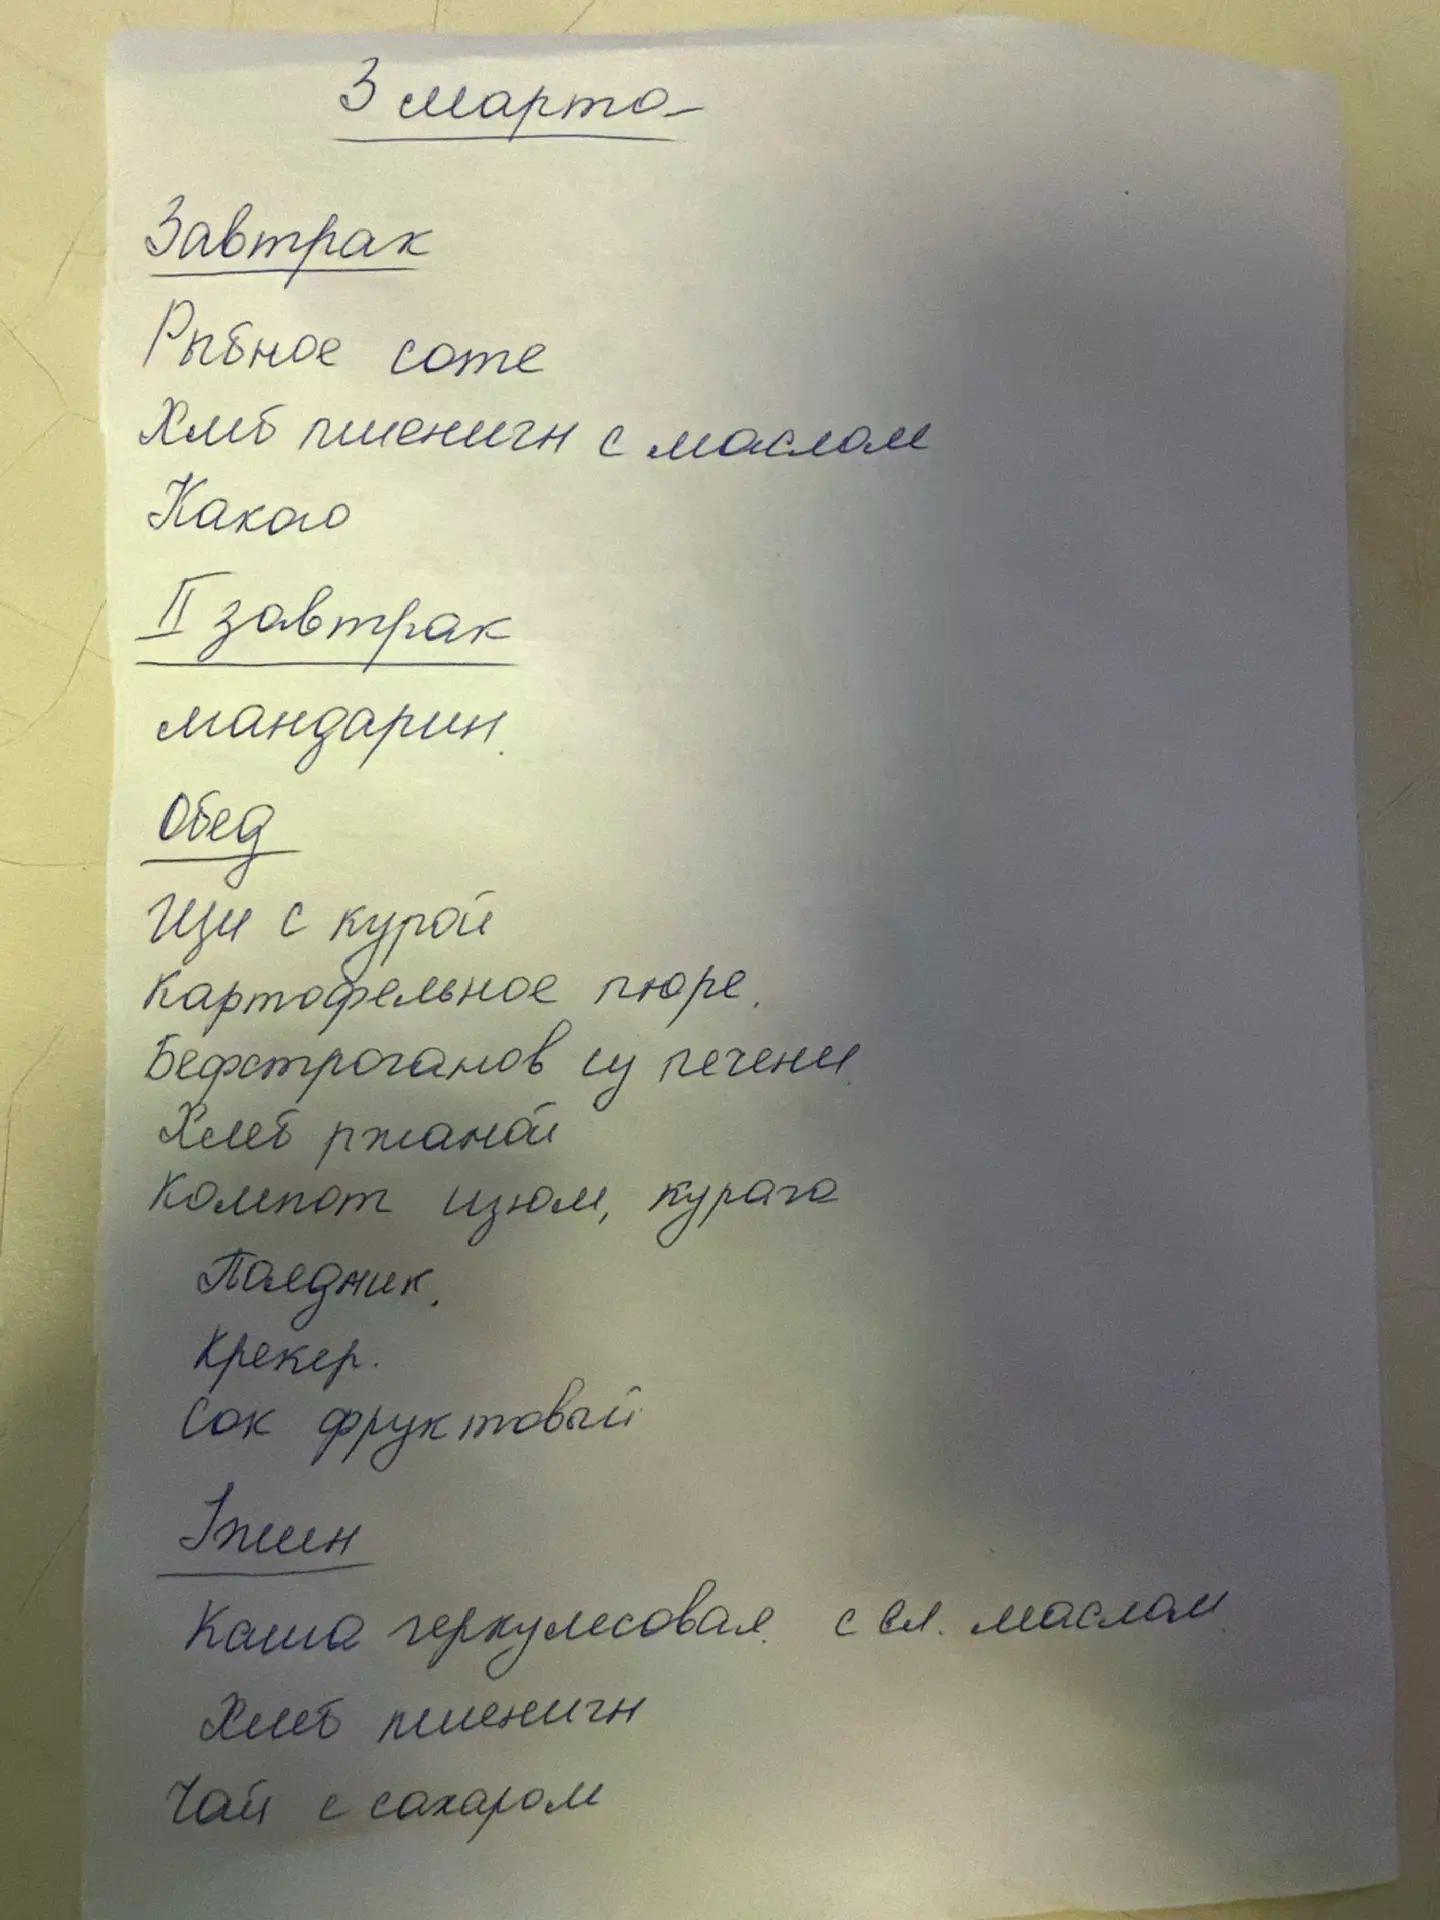 3 марта
Завтрак
Рыбное соте
Хлеб пшеничн с маслом
Какао
II завтрак
мандарин.
Обед
Щи с курой
Картофельное пюре.
Бефстроганов из печени.
Хлеб ржаной
Компот изюм, курага
Полдник.
Крекер.
Сок фруктовый
Ужин
Каша геркулесовая. с сл. маслом.
Хлеб пшеничн
Чай с сахаром